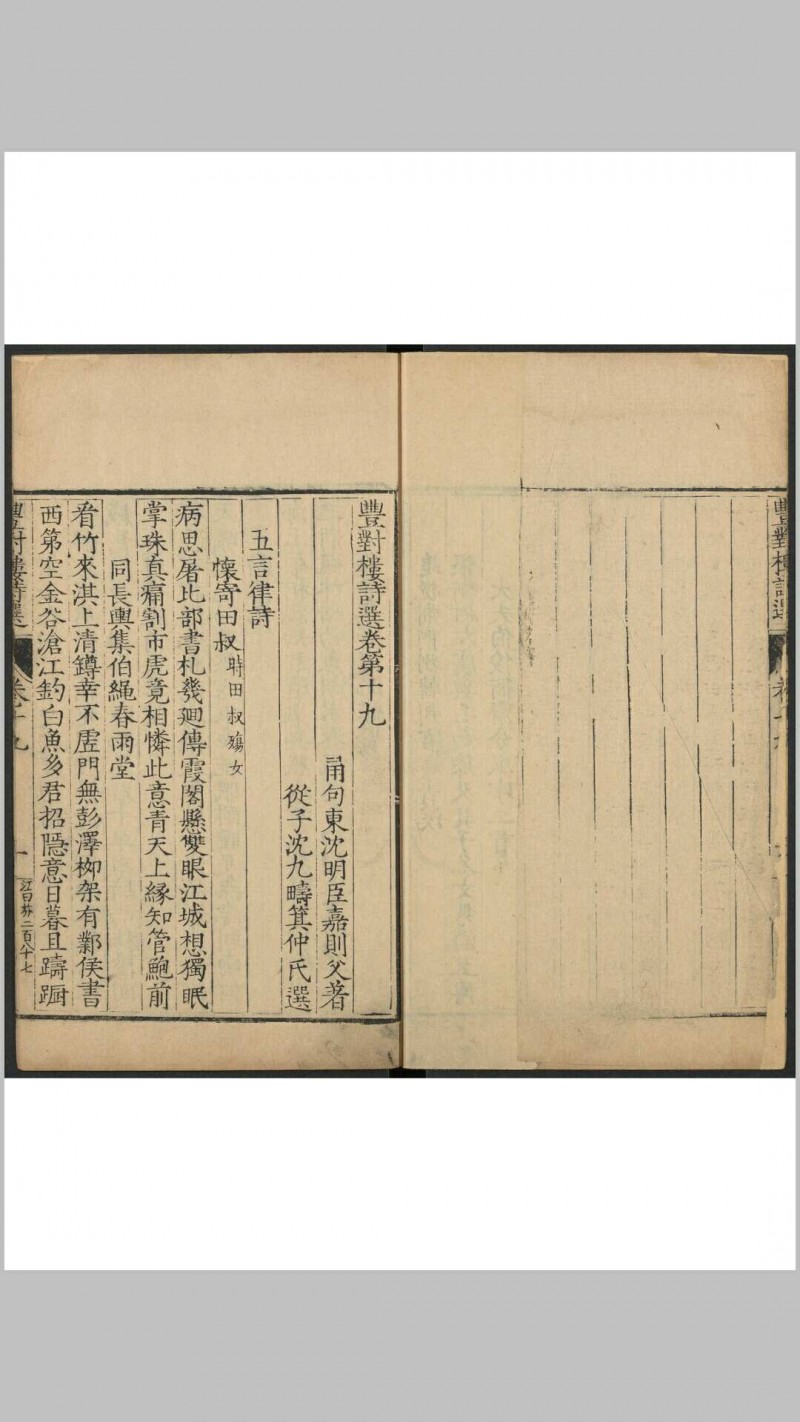 豐對樓詩選
卷十九
豐對樓詩選卷第十九
甬句東沈明臣嘉則父著
從子沈九疇箕仲氏選
五言律詩
懷寄田叔時田叔殤女
病思屠比部書札幾廻傳霞閣懸雙眼江城想獨眠
掌珠真痛割市虎竟相憐此意青天上緣知管鮑前
同長輿集伯繩春雨堂
看竹來淇上清罇幸不虛門無彭澤柳架有鄴侯書
西第空金谷滄江釣白魚多君招隱意日暮且躊蹰
豐對樓詩選
卷十九
一
二百八十七